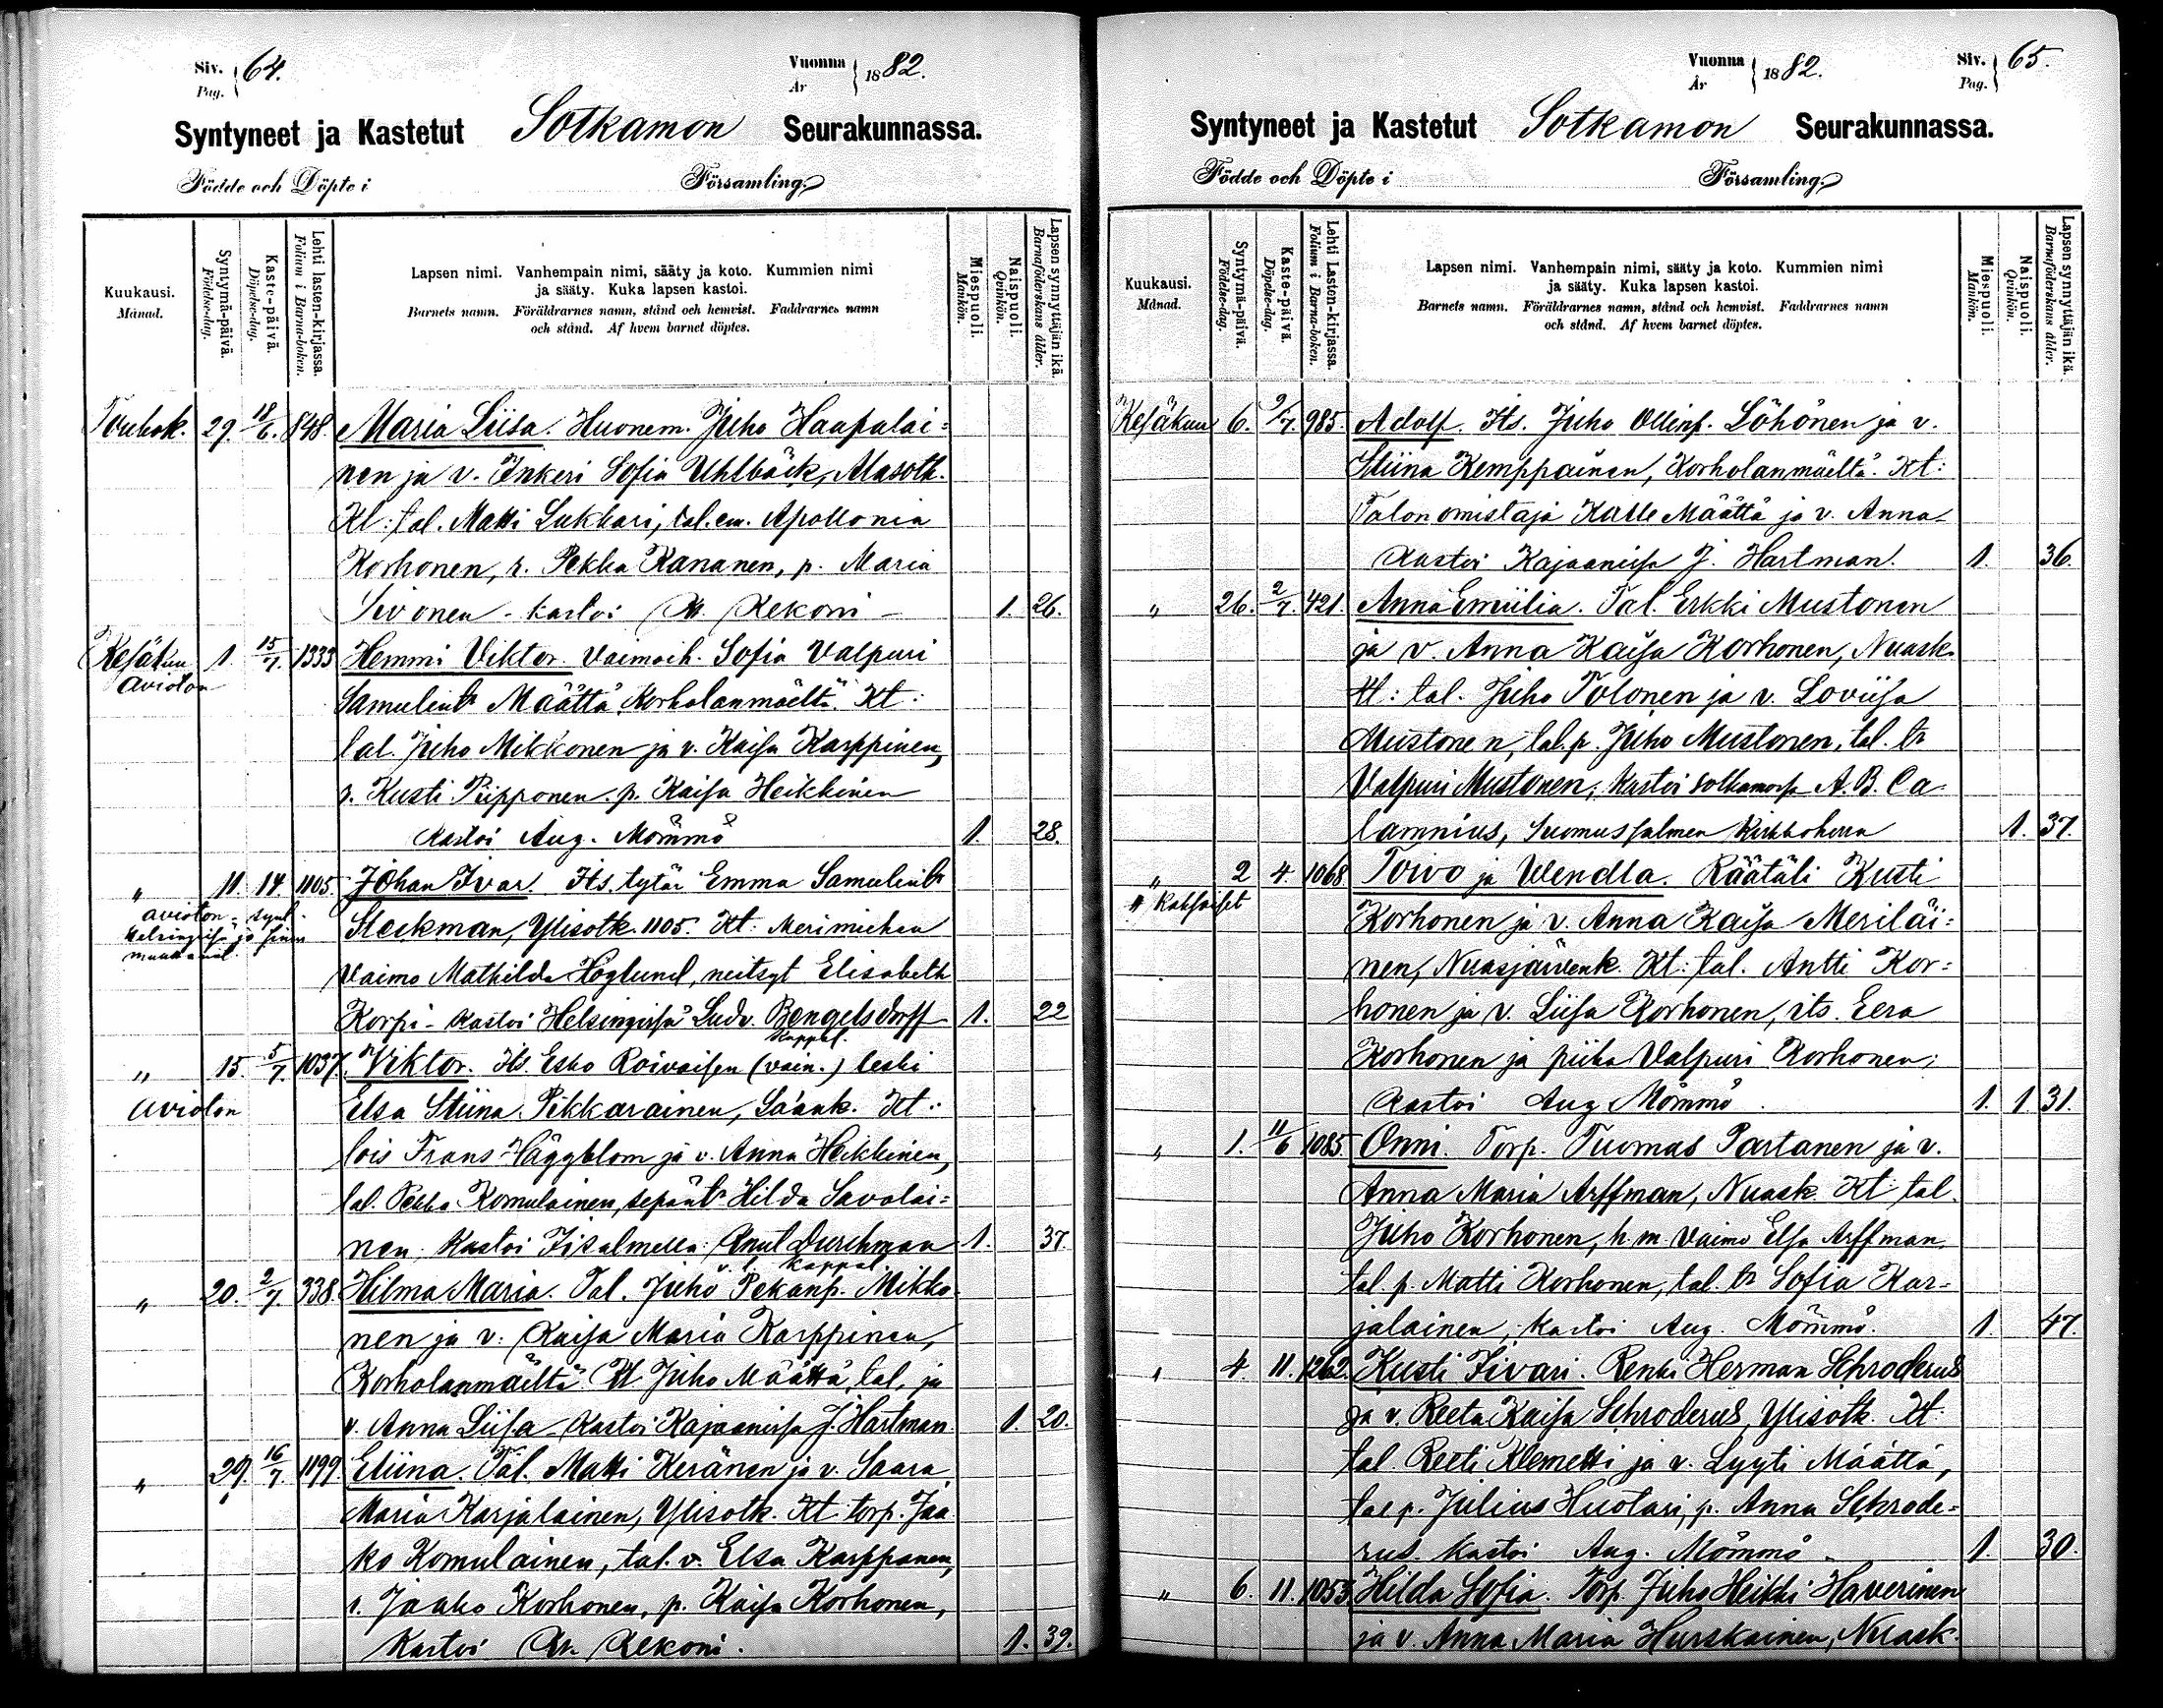 Siv. 64.
Pag.
Vuonna 1882.
År
Syntyneet ja Kastetut Sotkamon Seurakunnassa.
Födde och Döpte i Församling.
Kuukausi.
Månad.
Syntymä-päivä.
Födelse-dag.
Kaste-päivä.
Döpelse-dag.
Lehti lasten-kirjassa.
Folium i Barna-boken.
Lapsen nimi. Vanhempain nimi, sääty ja koto. Kummien nimi
ja sääty. Kuka lapsen kastoi.
Barnets namn. Föräldrarnes namn, stånd och hemvist. Faddrarnes namn
och stånd. Af hvem barnet döptes.
Miespuoli.
Mankön.
Naispuoli.
Qvinkön.
Lapsen synnyttäjän ikä.
Barnaföderskans ålder.
Toukok. 29. 18/6. 848. Maria Liisa. Huonem. Juho Haapalai=
nen ja v. Inkeri Sofia Uhlbäck, Alasotk.
Kt: tal. Matti Lukkari, tal. em. Apollonia
Korhonen, r. Pekka Kananen, p. Maria
Sivonen - kastoi Kr. Rekoni - 1. 26.
Kesäkuu 1. 15/7. 1333 Hemmi Viktor. Vaimoih. Sofia Valpuri
avioton
Samulint. Määttä Korholanmäeltä. Kt:
tal. Juho Mikkonen ja v. Kaisa Karppinen,
r. Kusti Piipponen. p. Kaisa Heikkinen
Kastoi Aug. Mömmö 1. 28.
" 11. 14. 1105. Johan Ivar. Its. tytär Emma Samulintr
avioton - synt.
Heckman, Ylisotk. 1105. Kt: Merimiehen
Vaimo Mathilda Höglund, neitsyt Elisabeth
Korpi - kastoi Helsingissä Ludv. Bengelsdorff 1. 22
kappal.
" 15. 5/7. 1037. Viktor. Its. Esko Roivaisen (vain.) leski
avioton
Elsa Stiina Pikkarainen, Kt:
lois Frans Häggblom ja v. Anna Heikkinen,
tal. Pekka Komulainen, sepäntr Hilda Savolai=
nen. Kastoi Iisalmella: Knut Durchman 1. 37.
kappal.
" 20. 2/7. 338. Hilma Maria. Tal. Juho Pekanp. Mikko-
nen ja v: Kaisa Maria Karppinen,
Korholanmäeltä. Kt Juho Määttä, tal. ja
v. Anna Liisa - Kastoi Kajaanissa J. Hartman. 1. 20.
" 29. 16/7. 1199 Eliina. Tal. Matti Keränen ja v. Saara
Maria Karjalainen, Ylisotk. Kt. torp. Jaa
ko Komulainen, tal. v. Elsa Karppanen,
r. Jaako Korhonen, p. Kaisa Korhonen,
Kastoi Kr. Rekoni. 1. 39.
Vuonna 1882.
År
Siv. 65.
Pag.
Syntyneet ja Kastetut Sotkamon Seurakunnassa.
Födde och Döpte i Församling.
Kuukausi.
Månad.
Syntymä-päivä.
Födelse-dag.
Kaste-päivä.
Döpelse-dag.
Lehti Lasten-kirjassa.
Folium i Barna-boken.
Lapsen nimi. Vanhempain nimi, sääty ja koto. Kummien nimi
ja sääty. Kuka lapsen kastoi.
Barnets namn. Föräldrarnes namn, stånd och hemvist. Faddrarnes namn
och stånd. Af hvem barnet döptes.
Miespuoli.
Mankön.
Naispuoli.
Qvinkön.
Lapsen synnyttäjän ikä.
Barnaföderskans ålder.
Kesäkuu 6. 2/7. 985. Adolf. Its. Juho Ollinp. Löhönen ja v.
Stiina Kemppainen, Korholanmäeltä. Kt:
Talonomistaja Kalle Määttä ja v. Anna -
Kastoi Kajaanissa J. Hartman. 1. 36.
" 26. 2/7. 421. Anna Emiilia. Tal. Erkki Mustonen
ja v. Anna Kaisa Korhonen, Nuask.
Kt: tal. Juho Tolonen ja v. Loviisa
Mustonen, tal. p. Juho Mustonen, tal. tr
Valpuri Mustonen; Kastoi Sotkamossa A. B. Ca-
lamnius, Suomussalmen Kirkkoherra 1. 37.
" 2 4. 1068 Toivo ja Wendla. Räätäli Kusti
" Kaksoiset
Korhonen ja v. Anna Kaisa Meriläi=
nen, Nuasjärvenk. Kt: tal. Antti Kor=
honen ja v. Liisa Korhonen, its. Eera
Korhonen ja piika Valpuri Korhonen;
Kastoi Aug Mömmö. 1. 1. 31.
" 1. 11/6 1085. Onni. Torp. Tuomas Partanen ja v.
Anna Maria Arffman, Nuask. Kt: tal.
Juho Korhonen, h. m. Vaimo Elsa Arffman,
tal. p. Matti Korhonen, tal. tr Sofia Kar=
jalainen; kastoi Aug. Mömmö. 1. 47.
" 4 11. 1262. Kusti Iivari. Renki Herman Schroderus
ja v. Reeta Kaisa Schroderus, Ylisotk. Kt:
tal. Reeti Klemetti ja v. Lyyti Määttä,
tal p. Julius Huotari, p. Anna Schrode=
rus. kastoi Aug. Mömmö. 1. 30.
" 6. 11. 1053. Hilda Sofia. Torp. Juho Heikki Haverinen
ja v. Anna Maria Hurskainen, Nuask.